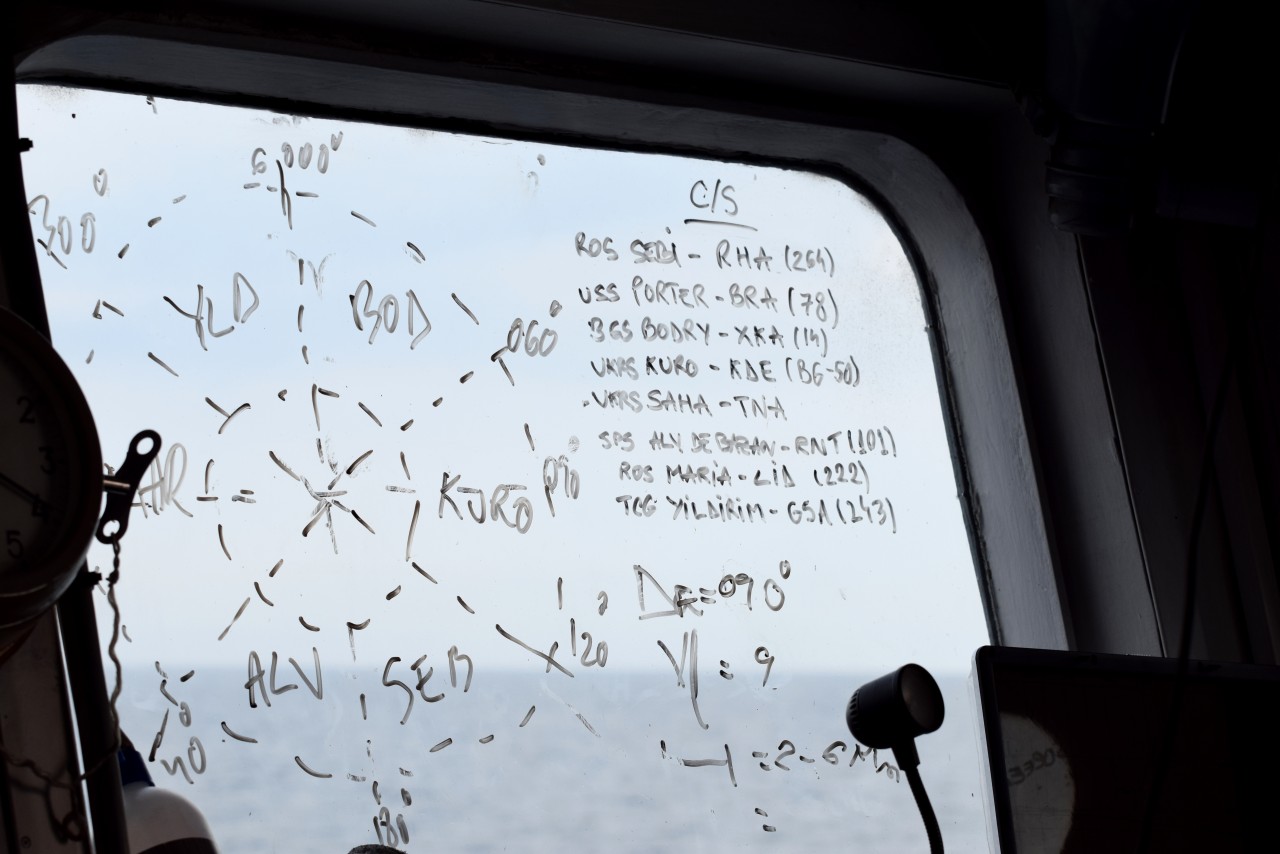 6 000°
300
060°
YLD
BOD
AR
KURO
090
ALV
SEB
120
180
C/S
ROS SEBI - RHA (264)
USS PORTER - BRA (78)
BGS BODRY - XKA (14)
UKRS KURO - KDE (BG-50)
UKRS SAHA - TNA
SPS ALVDEBARAN - RNT (101)
ROS MARIA - LID (222)
TCG YILDIRIM - GSA (243)
= 090°
= 9
= 2 - 6 Mn
2
3
4
5